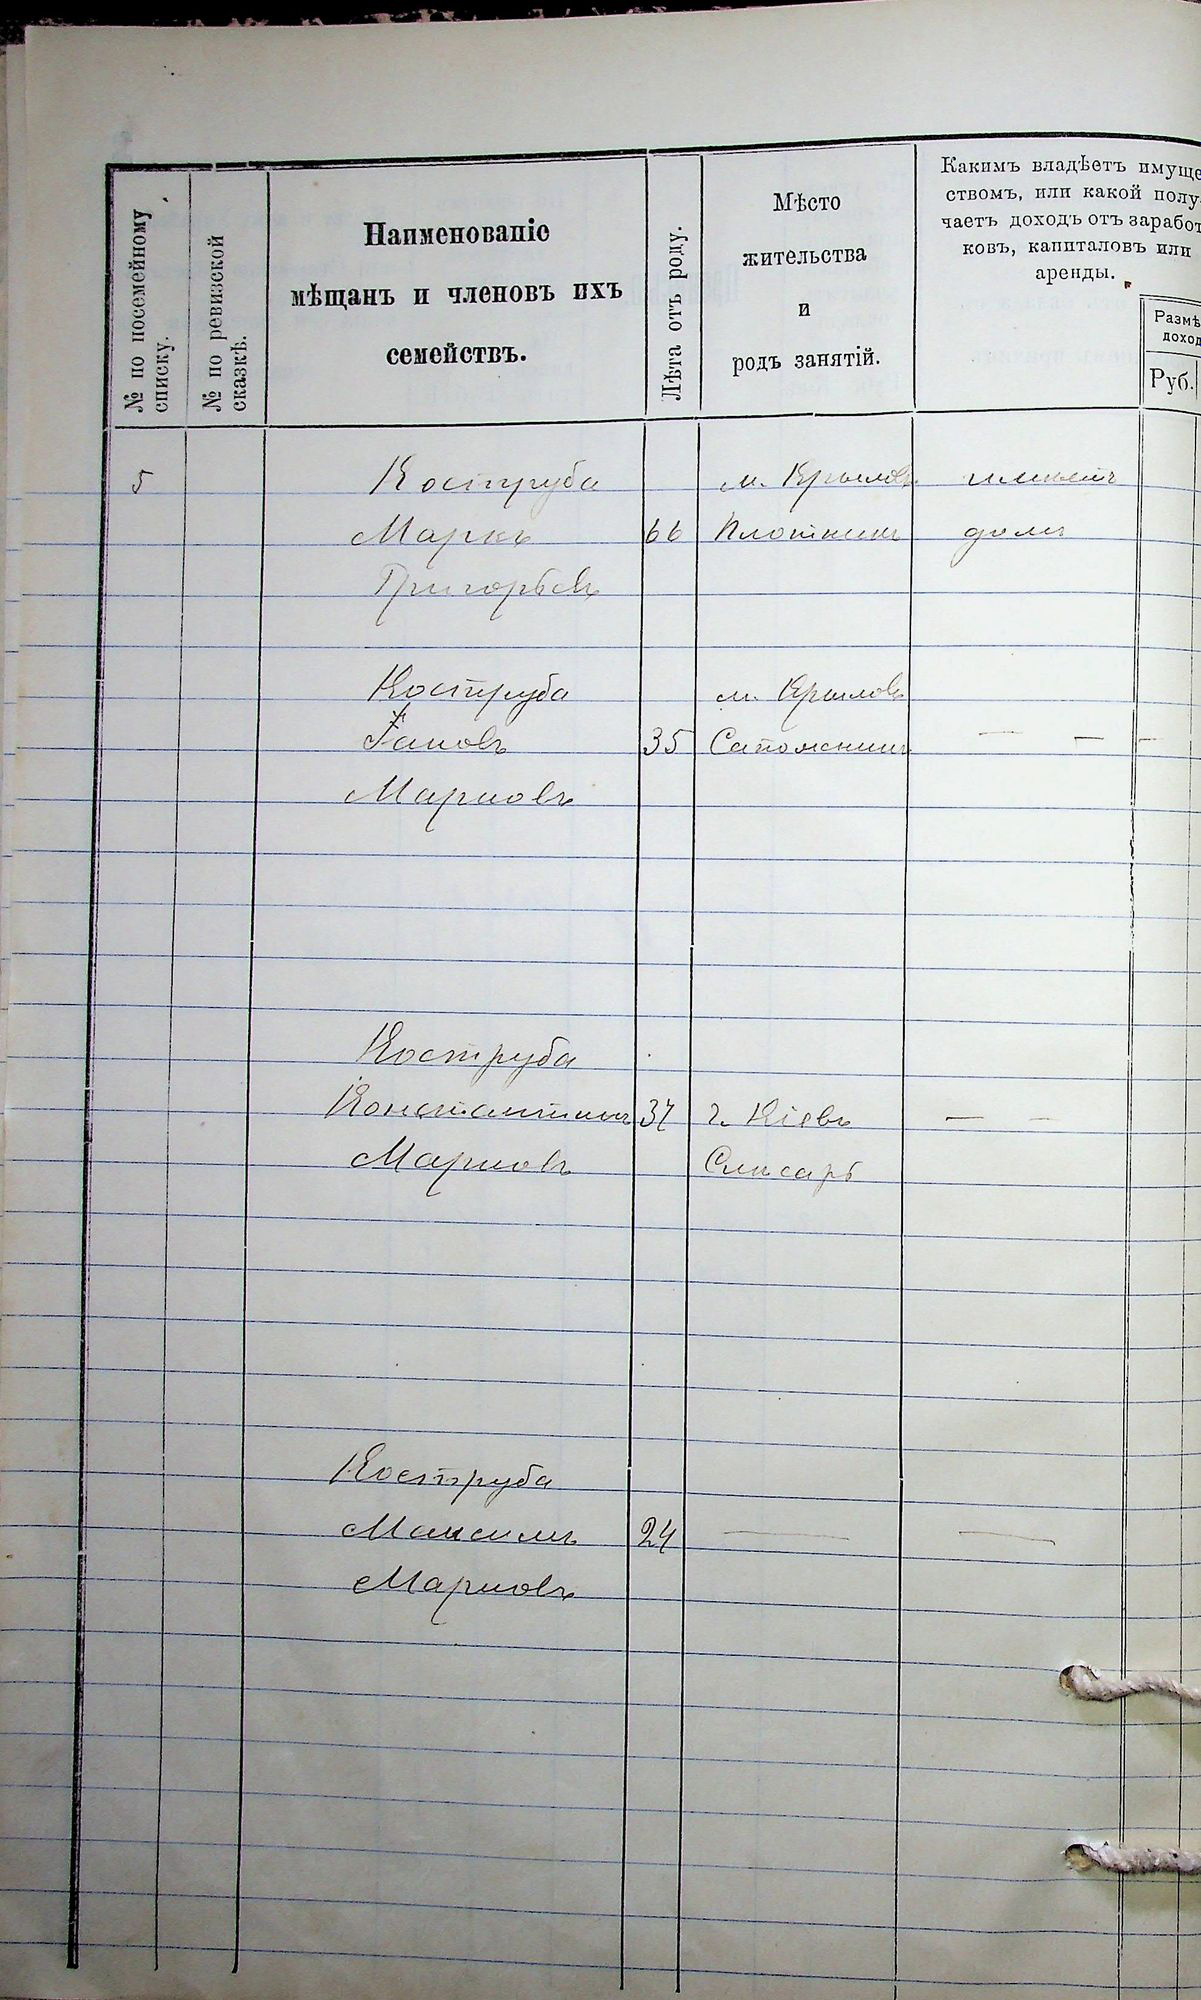 № по посемейному
списку.
№ по ревизской
сказкѣ.
Наименованіе
мѣщанъ и членовъ ихъ
семействъ.
Лѣта отъ роду.
Мѣсто
жительства
и
родъ занятій.
Какимъ владѣетъ имуще
ствомъ, или какой полу-
чаетъ доходъ отъ заработ
ковъ, капиталовъ или
аренды.
Размѣ
доход
Руб.
5 Коструба м. Крыловъ имѣетъ
Маркъ 66 Плотникъ домъ
Григорьевъ
Коструба м. Крыловъ
Яковъ 35 Сапожникъ — — —
Марковъ
Коструба
Константинъ 37 г. Кіевъ — —
Марковъ Слѣсарь
Коструба
Максимъ 24 — —
Марковъ